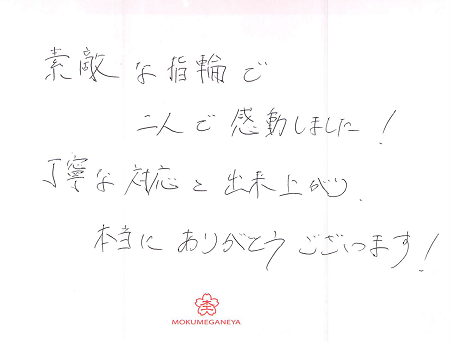 素敵な指輪で
二人で感動しました!
丁寧な対応と出来上がり
本当にありがとうございます!
杢
MOKUMEGANEYA